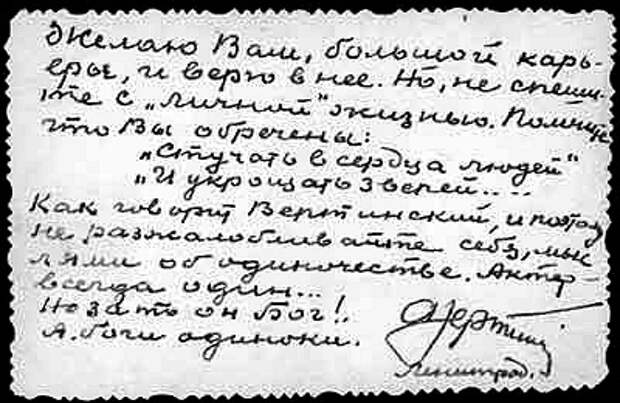 Желаю Вам, большой карь-
еры, и верю в нее. Но, не спеши-
те с „личной" жизнью. Помните
что Вы обречены:
„Стучать в сердца людей"
„И укрощать зверей....
Как говорит Вертинский, и поэтому
не разжалобливайте себя, мыс
лями об одиночестве. Актер –
всегда один...
Но зато он Бог!.
А. боги одиноки.
АВертинский
Ленинград.